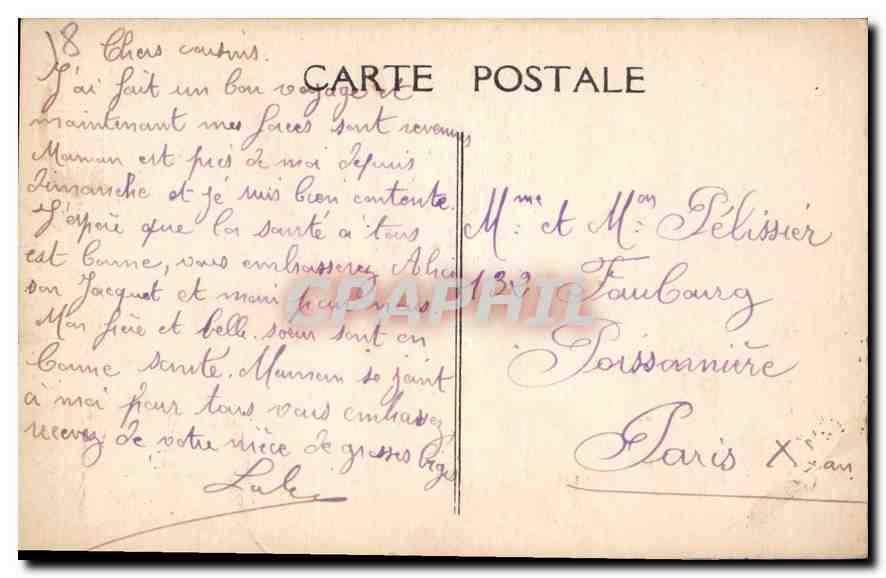 18 Chers cousins.
CARTE POSTALE
J'ai fait un bon voyage et
maintenant mes forces sont revenues
Maman est près de moi depuis
dimanche et je suis bien contente.
J'espère que la santé à tous
est bonne, vous embrasserez
Jacquet et pour nous
Mon frère et belle-soeur sont en
bonne santé. Maman se joint
à moi pour tous vous embrasser,
recevez de votre nièce de grosses bises
Mme et Mon Pélissier
132 Faubourg
Poissonnière
Paris X
CPAPHIL